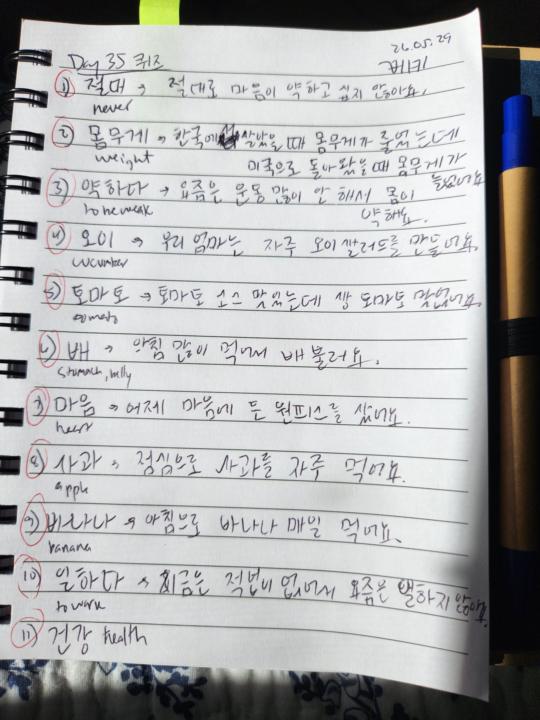 Day 35 퀴즈
26.05.29
1) 절대 → 절대로 마음이 약하고 싶지 않아요.
never
2) 몸무게 → 한국에 살았을 때 몸무게가 줄었는데
weight
미국으로 돌아왔을 때 몸무게가
늘었어요
3) 약하다 → 요즘은 운동 많이 안 해서 몸이
약해요.
to be weak
4) 오이 → 우리 엄마는 자주 오이 샐러드를 만들어요.
cucumber
5) 토마토 → 토마토 소스 맛있는데 생 토마토 맛없어요.
tomato
6) 배 → 아침 많이 먹어서 배 불러요.
stomach, belly
7) 마음 → 어제 마음에 든 원피스를 샀어요.
heart
8) 사과 → 점심으로 사과를 자주 먹어요.
apple
9) 바나나 → 아침으로 바나나 매일 먹어요.
banana
10) 일하다 → 지금은 직업이 없어서 요즘은 일하지 않아요.
to work
11) 건강 health